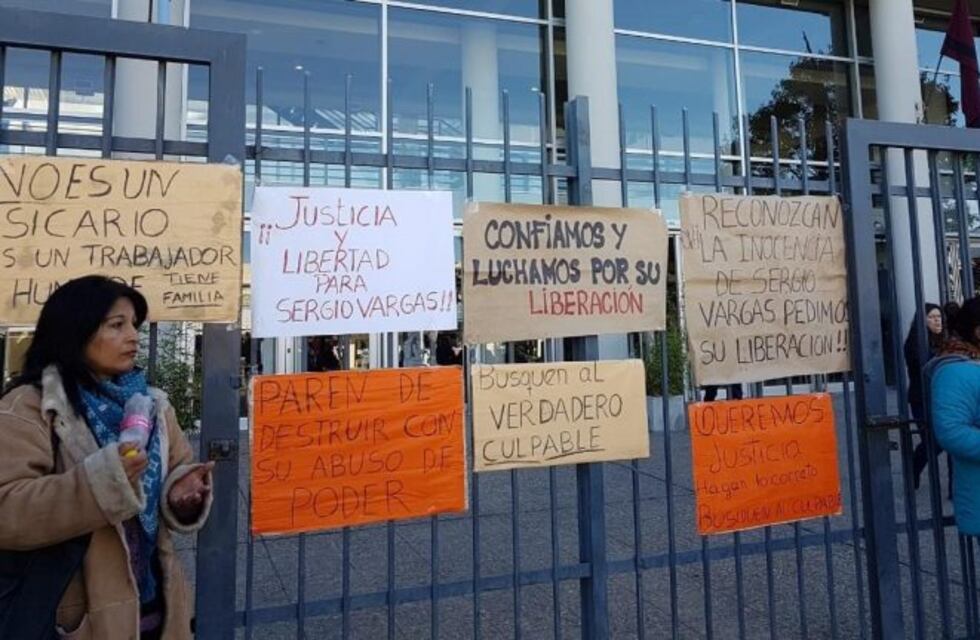 NO ES UN
SICARIO
ES UN TRABAJADOR
HUMILDE TIENE
FAMILIA
¡¡ JUSTICIA
Y
LIBERTAD
PARA
SERGIO VARGAS!!
CONFÍAMOS Y
LUCHAMOS POR SU
LIBERACIÓN
RECONOZCAN
LA INOCENCIA
DE SERGIO
VARGAS PEDIMOS
SU LIBERACIÓN!!
PAREN DE
DESTRUIR CON
SU ABUSO DE
PODER
BUSQUEN AL
VERDADERO
CULPABLE
QUEREMOS
JUSTICIA
Hagan lo correto
BUSQUEN AL CULPABLE